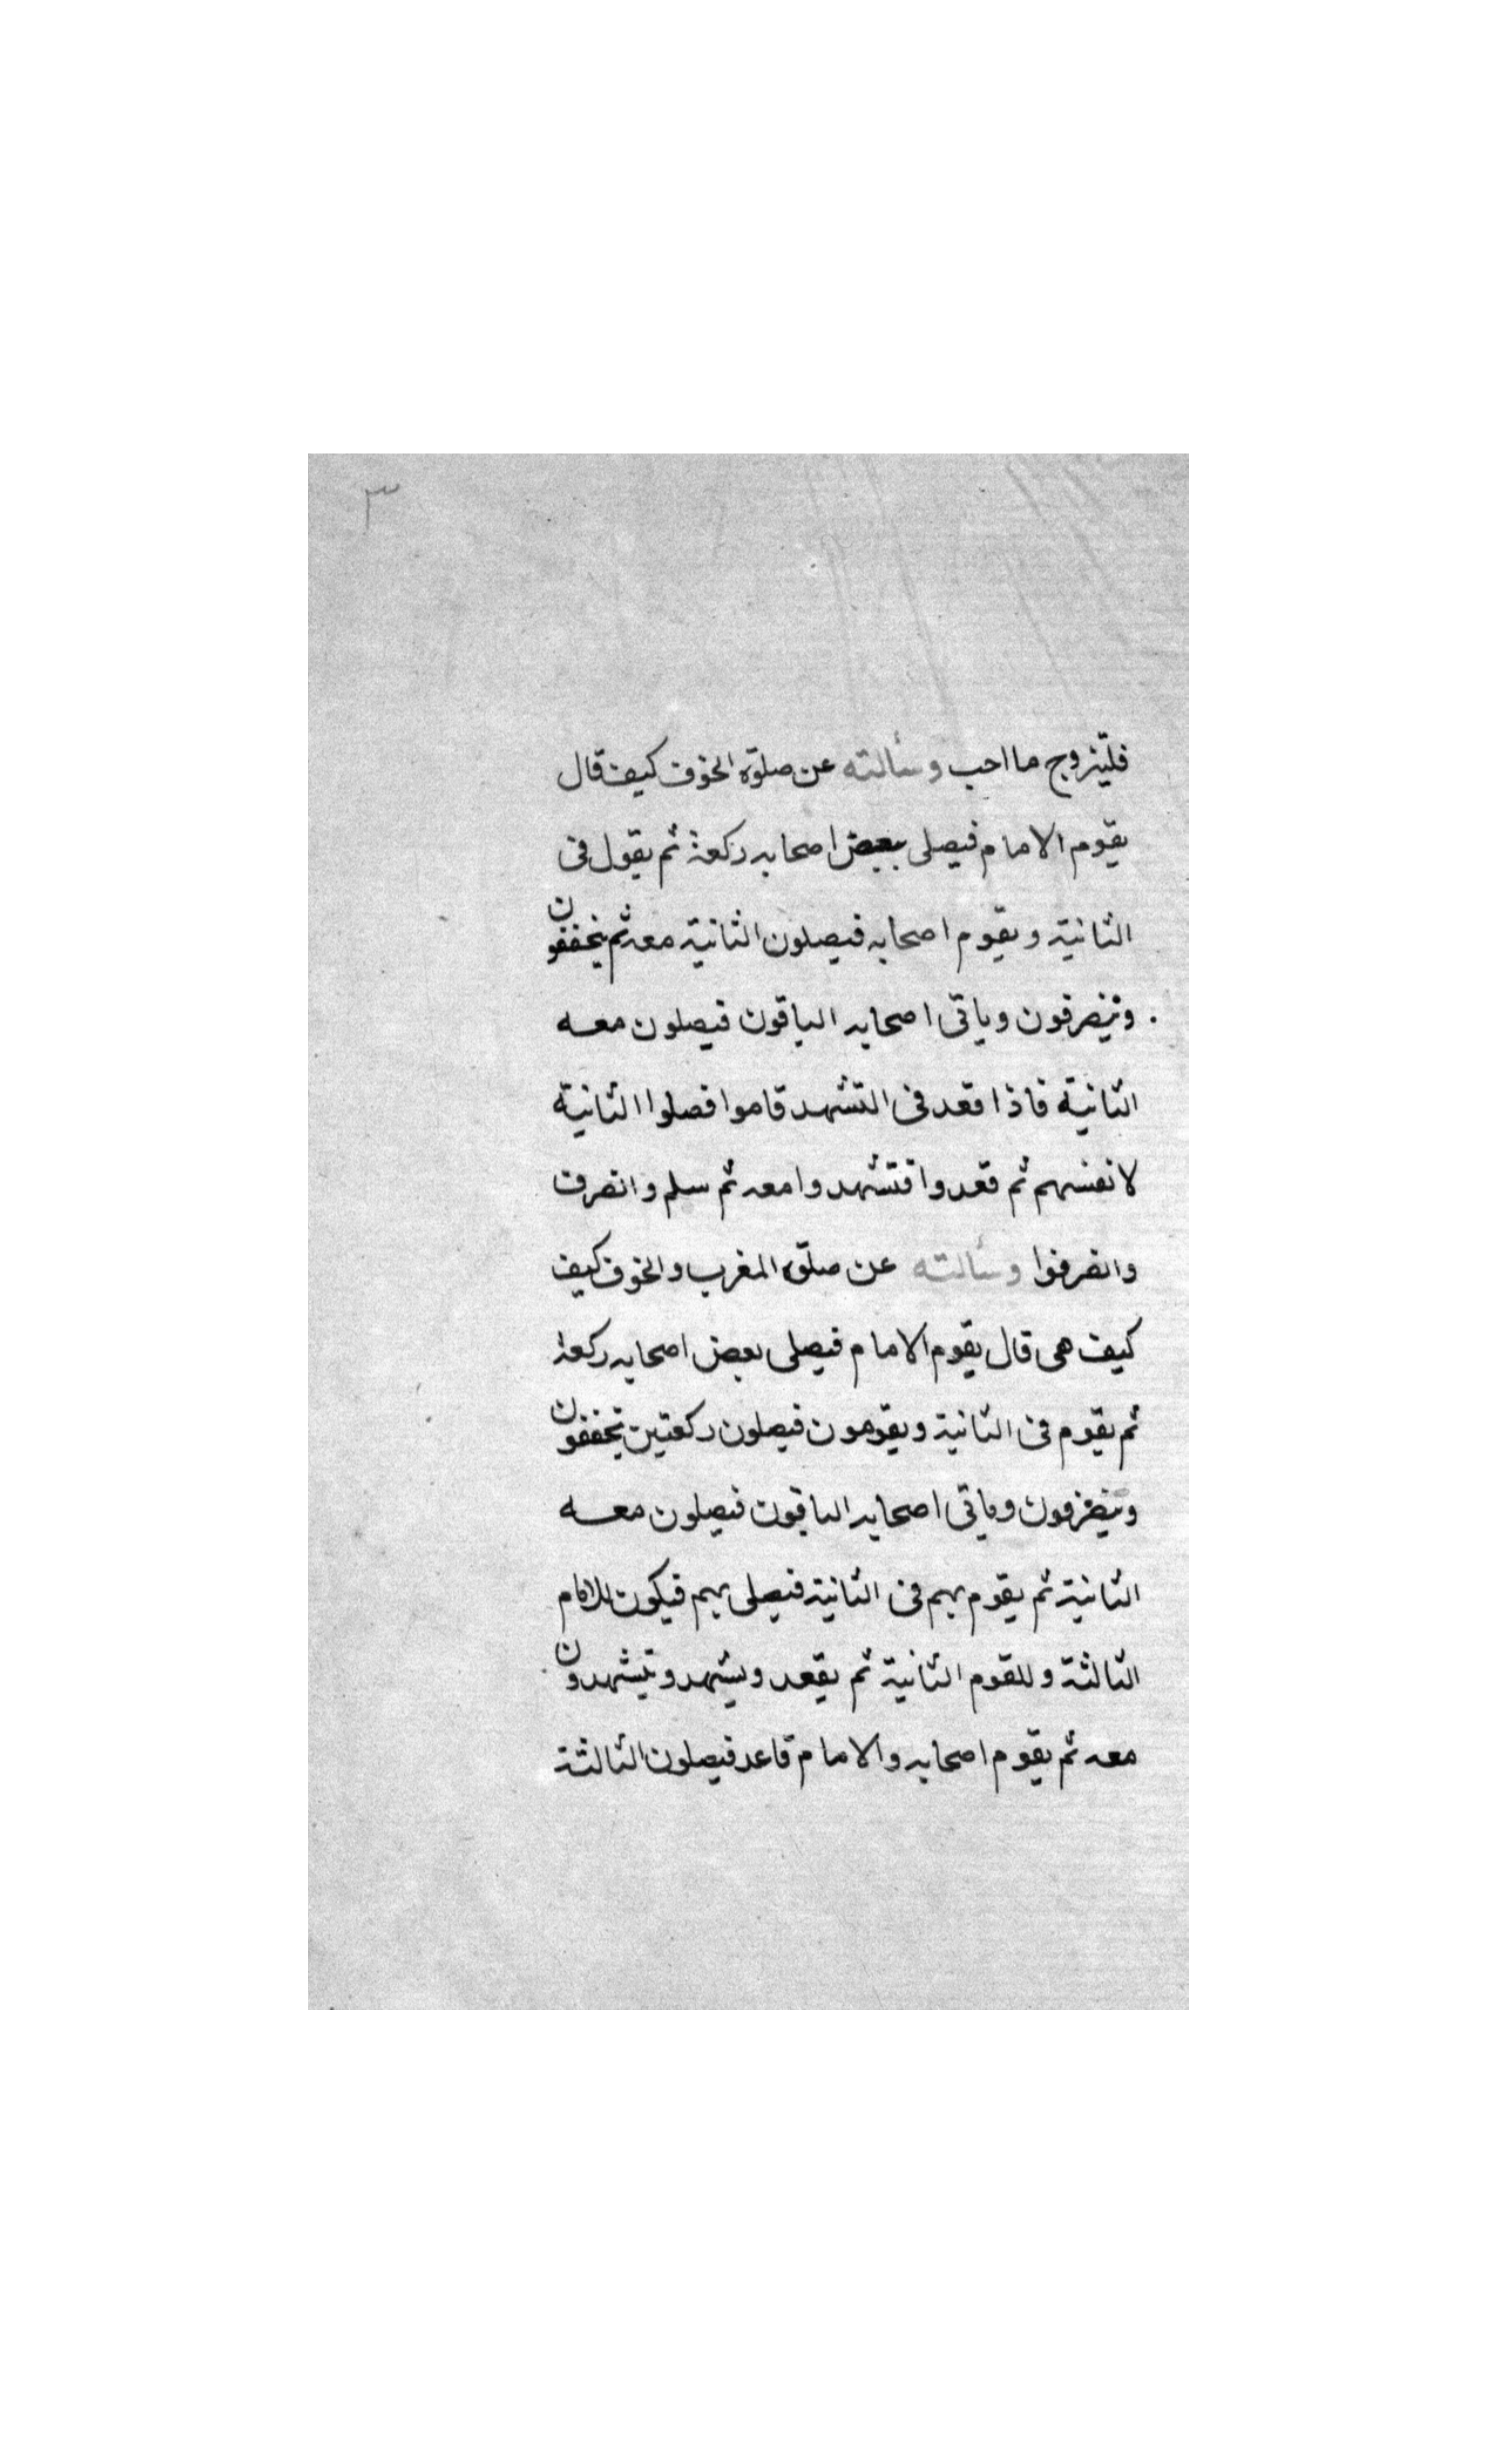 ٣
فليتزوج ما احب وسألته عن صلوة الخوف كيف قال
يقوم الامام فيصلى ببعض اصحابه ركعة ثم يقول فى
الثانية ويقوم اصحابه فيصلون الثانية معه ثم يخففون
وينصرفون وياتى اصحابه الباقون فيصلون معه
الثانية فاذا قعد فى التشهد قاموا فصلوا الثانية
لانفسهم ثم قعدوا فتشهدوا معه ثم سلم وانصرف
وانصرفوا وسألته عن صلوة المغرب والخوف كيف
كيف هى قال يقوم الامام فيصلى بعض اصحابه ركعة
ثم يقوم فى الثانية ويقومون فيصلون ركعتين يخففون
وينصرفون وياتى اصحابه الباقون فيصلون معه
الثانية ثم يقوم بهم فى الثانية فيصلى بهم فيكون للامام
الثالثة وللقوم الثانية ثم يقعد ويتشهد ويتشهدون
معه ثم يقوم اصحابه والامام قاعد فيصلون الثالثة